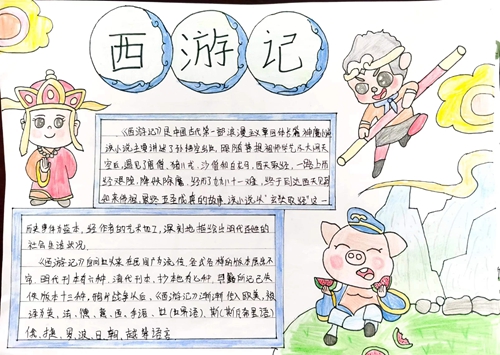 西游记
《西游记》是中国古代第一部浪漫主义章回体长篇神魔小说
该小说主要讲述了孙悟空出世,跟随菩提祖师学艺及大闹天
宫后,遇见了唐僧、猪八戒、沙僧和白龙马,西天取经,一路上历
经艰险,降妖除魔,经历了九九八十一难,终于到达西天见到
如来佛祖,最终五圣成真的故事。该小说以"玄奘取经"这一
历史事件为蓝本,经作者的艺术加工,深刻地描绘出明代百姓的
社会生活状况。
《西游记》自问世以来在民间广为流传,各式各样的版本层出不
穷,明代刊本有六种,清代刊本、抄本也有七种,典籍所记已失
佚版本十三种。鸦片战争以后,《西游记》渐渐传入欧美,被
译为英、法、德、意、西、手语、世(世界语)、斯(斯瓦希里语)
俄、捷、罗、波、日、朝、越等语言